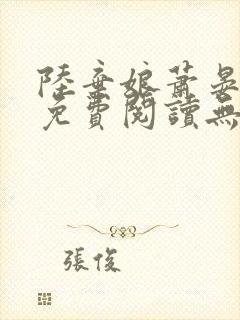 陸棄娘蕭晏
免費閱讀無
張俊